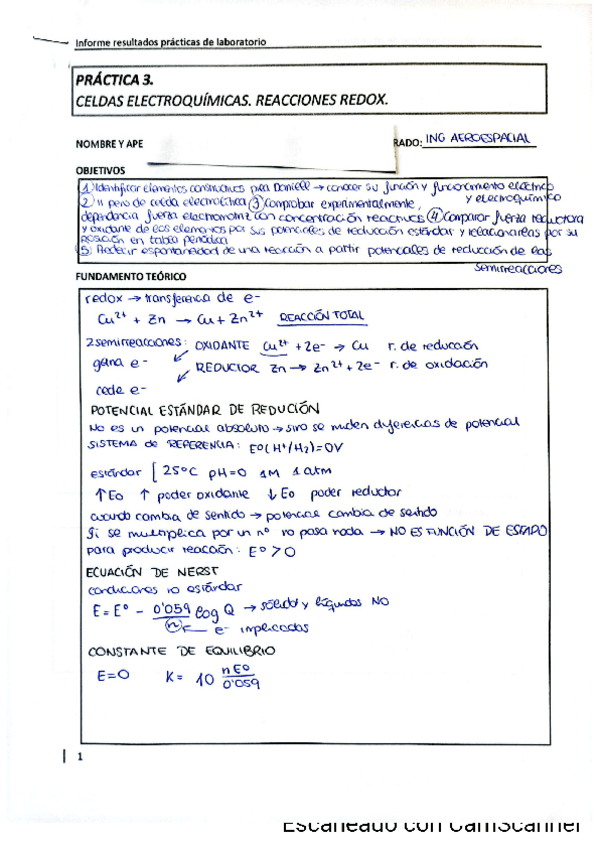 Informe resultados prácticas de laboratorio
PRÁCTICA 3.
CELDAS ELECTROQUÍMICAS. REACCIONES REDOX.
NOMBRE Y APE RADO: ING AEROESPACIAL
OBJETIVOS
1) Identificar elementos constructivos pila Daniell → conocer su función y funcionamiento eléctrico
y electroquímico
2) " pero de celda electrolítica ③ Comprobar experimentalmente,
dependencia fuerza electromotriz con concentración reactivos ④ Comparar fuerza reductora
y oxidante de los elementos por sus potenciales de reducción estándar y relacionarlas por su
posición en tabla periódica
5) Predecir espontaneidad de una reacción a partir potenciales de reducción de las
semirreacciones
FUNDAMENTO TEÓRICO
redox → transferencia de e-
Cu²⁺ + Zn → Cu + Zn²⁺ REACCIÓN TOTAL
2 semirreacciones: OXIDANTE Cu²⁺ + 2e- → Cu r. de reducción
gana e- REDUCTOR Zn → Zn²⁺ + 2e- r. de oxidación
cede e-
POTENCIAL ESTÁNDAR DE REDUCIÓN
No es un potencial absoluto → sino se miden diferencias de potencial
SISTEMA de REFERENCIA: Eº(H⁺/H₂)=0V
estándar [ 25ºC pH=0 1M 1 atm
↑Eo ↑ poder oxidante ↓Eo poder reductor
cuando cambia de sentido → potencial cambia de sentido
Si se multiplica por un nº no pasa nada → NO ES FUNCIÓN DE ESTADO
para producir reacción: Eº > 0
ECUACIÓN DE NERST
condiciones no estándar
E = Eº - 0'059/n log Q → sólidos y líquidos NO
e- implicados
CONSTANTE DE EQUILIBRIO
E=0 K= 10 nEº/0'059
1
Escaneado con CamScanner